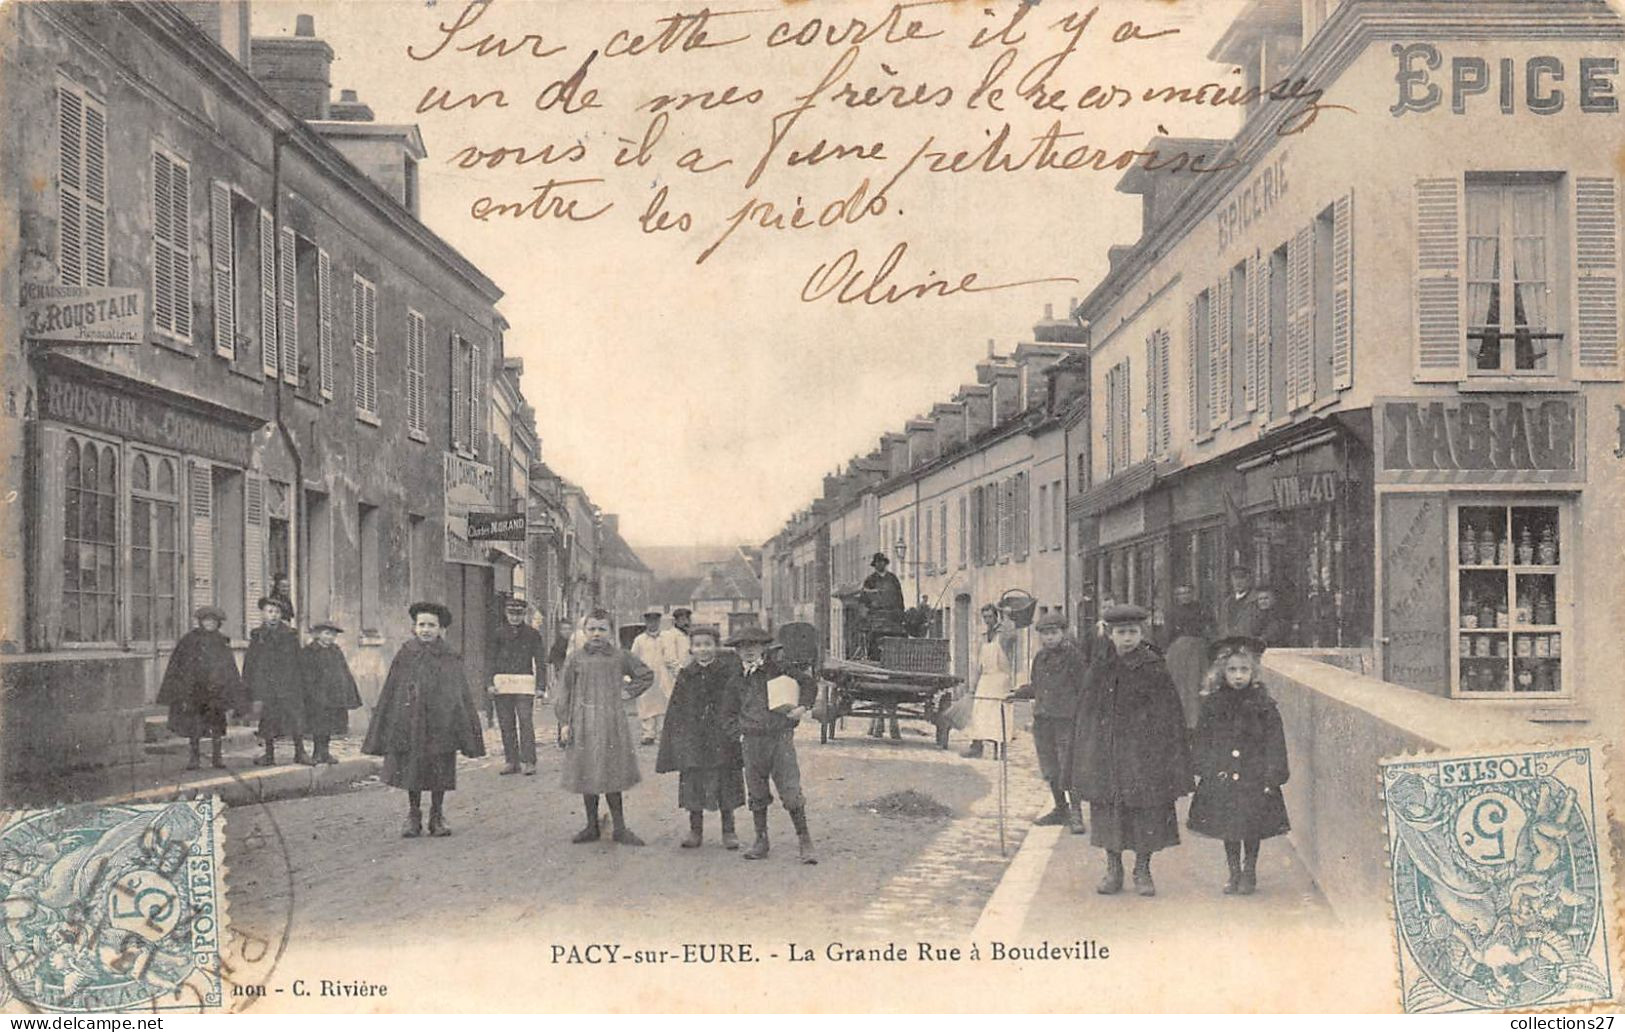 Sur cette carte il y a
un de mes frères le reconnaissez
vous il a une petite croix
entre les pieds.
Aline
EPICE
EPICERIE
CHAUSSURES
L. ROUSTAIN
Réparations
ROUSTAIN CORDONNIER
Charles MORAND
TABAC
VIN à 40
POSTES
5
5
POSTES
PACY-sur-EURE. - La Grande Rue à Boudeville
non - C. Rivière
collections27